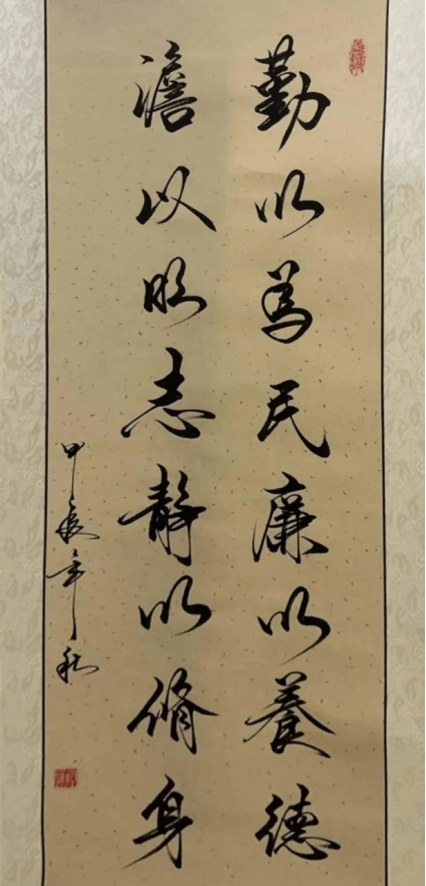 勤以為民廉以養德
澹以明志静以脩身
甲辰年秋